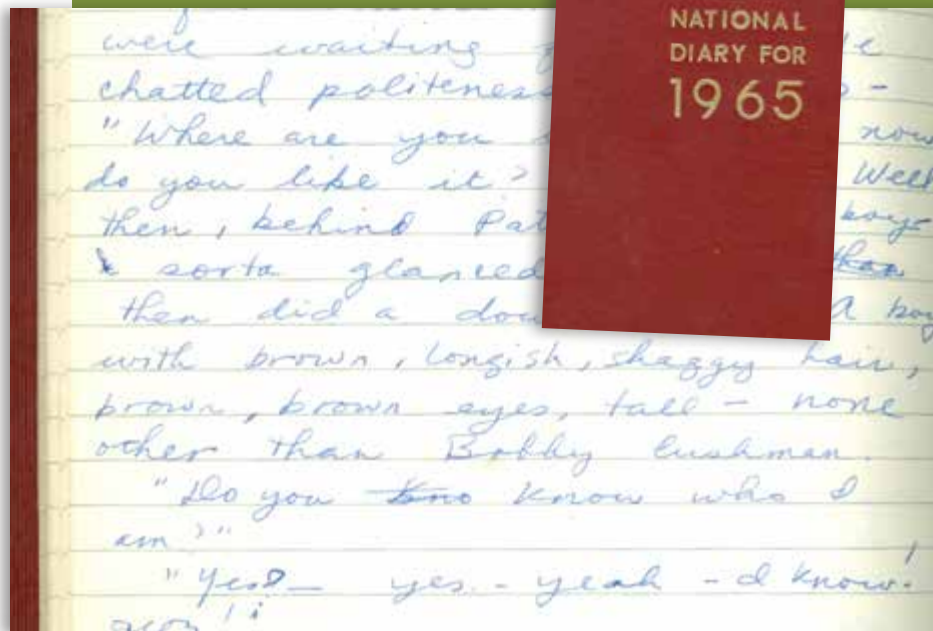 NATIONAL
DIARY FOR
1965
were waiting
chatted politeness -
"Where are you now
do you like it? Well
then, behind Pat boys
sorta glanced than
then did a dou A boy
with brown, longish, shaggy hair,
brown, brown eyes, tall - none
other than Bobby Cushman.
"Do you kno know who I
am?"
"Yes? - yes - yeah - I know!